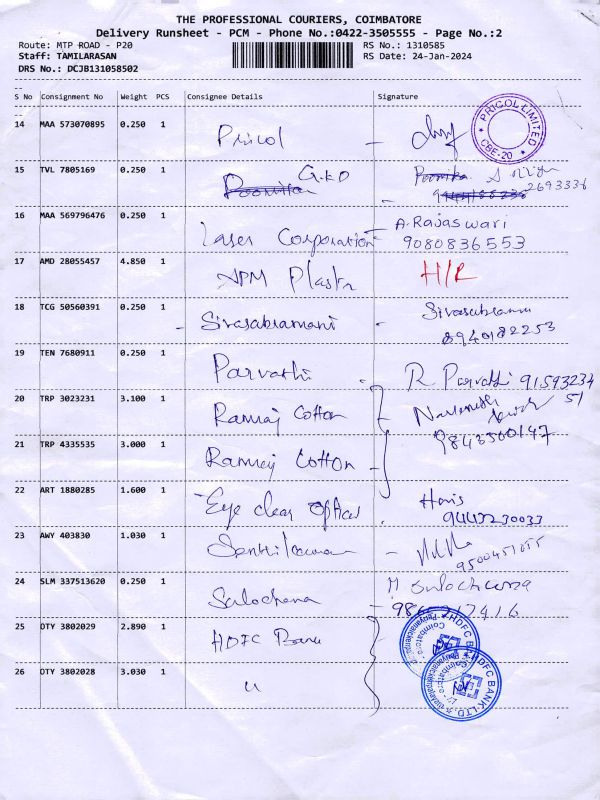 THE PROFESSIONAL COURIERS, COIMBATORE
Delivery Runsheet - PCM - Phone No.:0422-3505555 - Page No.:2
Route: MTP ROAD - P20 RS No.: 1310585
Staff: TAMILARASAN RS Date: 24-Jan-2024
DRS No.: DCJB131058502
S No Consignment No Weight PCS Consignee Details Signature
14 MAA 573070895 0.250 1 Pricol
PRICOL LIMITED CBE-20
15 TVL 7805169 0.250 1 G.KD
2693336
16 MAA 569796476 0.250 1 Laser Corporation A. Rajaswari
9080836553
17 AMD 28055457 4.850 1 APM Plastr H/R
18 TCG 50560391 0.250 1 Sivasabramani Sivasabramani
8940182253
19 TEN 7680911 0.250 1 Parvathi R. Parvathi 91593234
51
20 TRP 3023231 3.100 1 Ramraj Cotton
9843500147
21 TRP 4335535 3.000 1 Ramraj Cotton
22 ART 1880285 1.600 1 Eye clear optical Haris
9443230033
23 AWY 403830 1.030 1 Senthilkumar
24 SLM 337513620 0.250 1 Sulochana M Sulochana
25 DTY 3802029 2.890 1 HDFC Bank
HDFC BANK LTD. Coimbatore
26 DTY 3802028 3.030 1 "
HDFC BANK LTD. Coimbatore